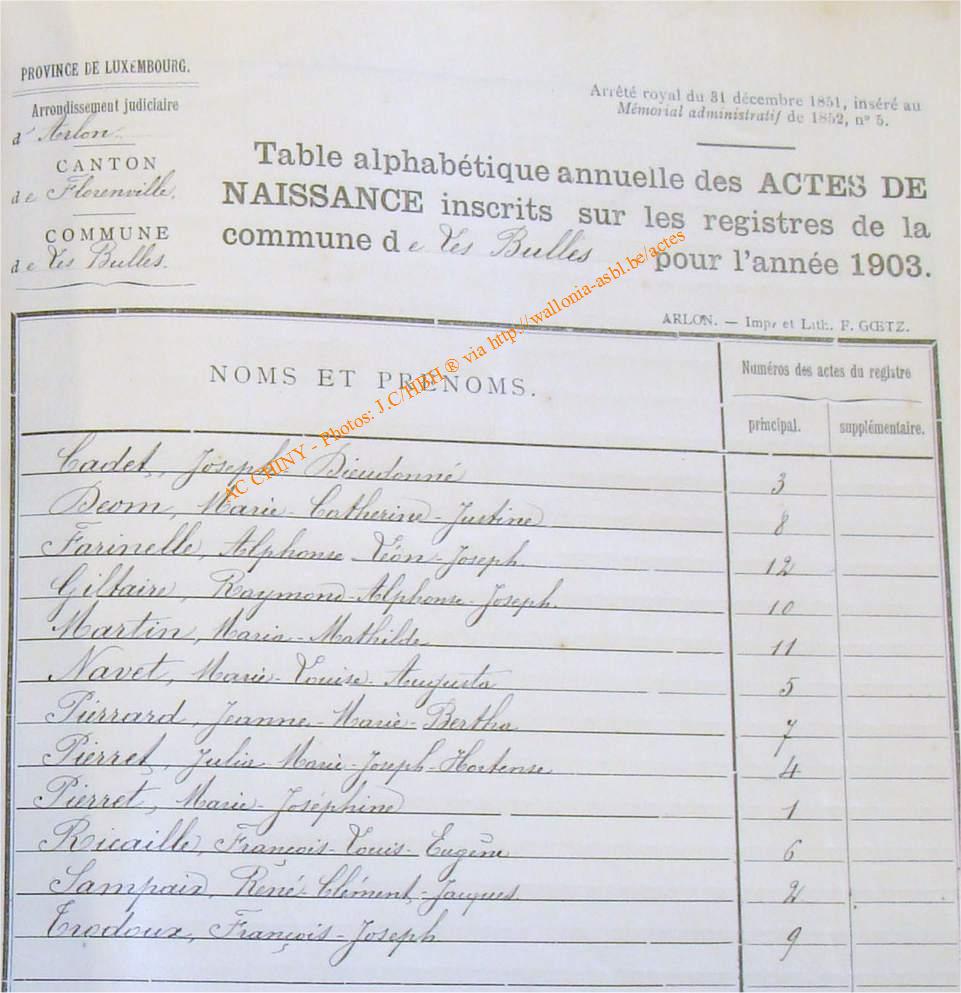 PROVINCE DE LUXEMBOURG.
Arrondissement judiciaire
d'Arlon
CANTON
de Florenville.
COMMUNE
de Les Bulles.
Arrêté royal du 31 décembre 1851, inséré au
Mémorial administratif de 1852, n° 5.
Table alphabétique annuelle des ACTES DE
NAISSANCE inscrits sur les registres de la
commune de Les Bulles pour l'année 1903.
ARLON. — Impr et Lith. F. GŒTZ.
NOMS ET PRÉNOMS.
Numéros des actes du registre
principal. supplémentaire.
Cadet, Joseph Dieudonné 3
Deom, Marie-Catherine-Justine 8
Farinelle, Alphonse Léon-Joseph. 12
Giltaire, Raymond-Alphonse-Joseph. 10
Martin, Maria-Mathilde 11
Navet, Marie-Louise-Augusta 5
Pierrard, Jeanne-Marie-Bertha 7
Pierret, Julia Marie-Joseph-Hortense 4
Pierret, Marie-Joséphine 1
Ricaille, François-Louis-Eugène 6
Sampaix, René-Clément-Jacques 2
Trodoux, François-Joseph 9
AC CHINY - Photos: J.C/HBH ® via http://wallonia-asbl.be/actes